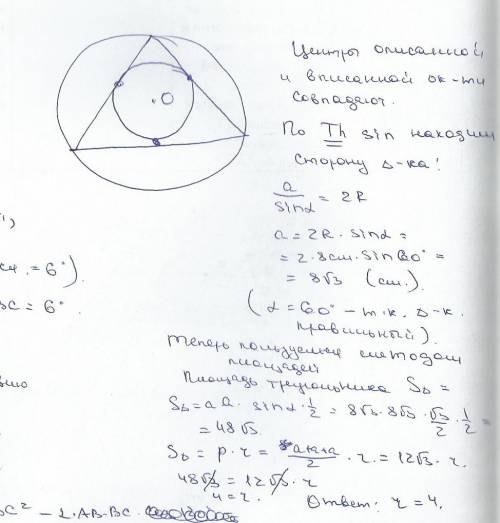 O
Центры описанной
и вписанной ок-ти
совпадают.
По Th sin находим
сторону Δ-ка:
a/sinα = 2R
a = 2R · sinα =
= 2 · 8см · sin 60° =
= 8√3 (см).
(α = 60° - т.к. Δ-к
правильный).
Теперь пользуемся методом
площадей
Площадь треугольника SΔ =
SΔ = a a · sinα · 1/2 = 8√3 · 8√3 · √3/2 · 1/2 =
= 48√3.
SΔ = p · r = a+a+a/2 · r = 12√3 · r.
48√3 = 12√3 · r
4 = r.
Ответ: r = 4.
= 6°).
BC = 6°
BC² - 2 · AB · BC ·